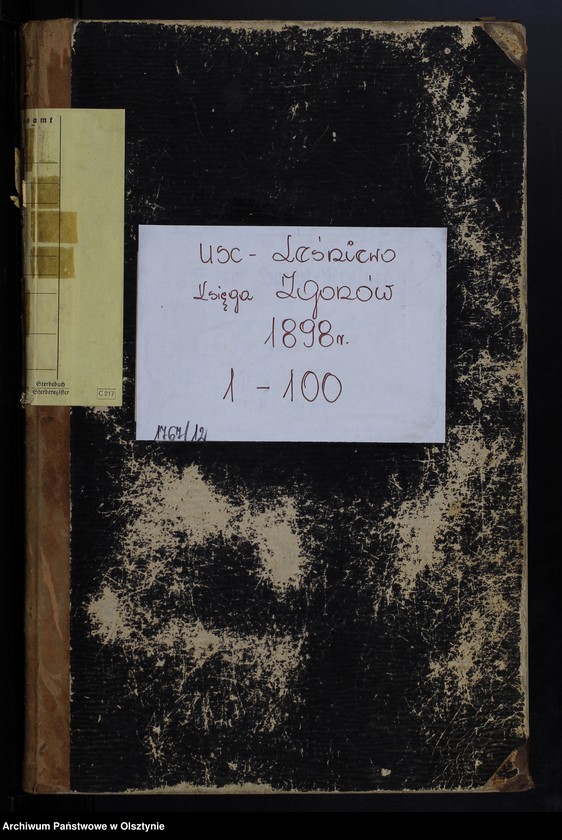 amt
USC - Leśniewo
Księga Zgonów
1898 r.
1 - 100
1767/12
Sterbebuch
Sterberegister
C 217
Archiwum Państwowe w Olsztynie